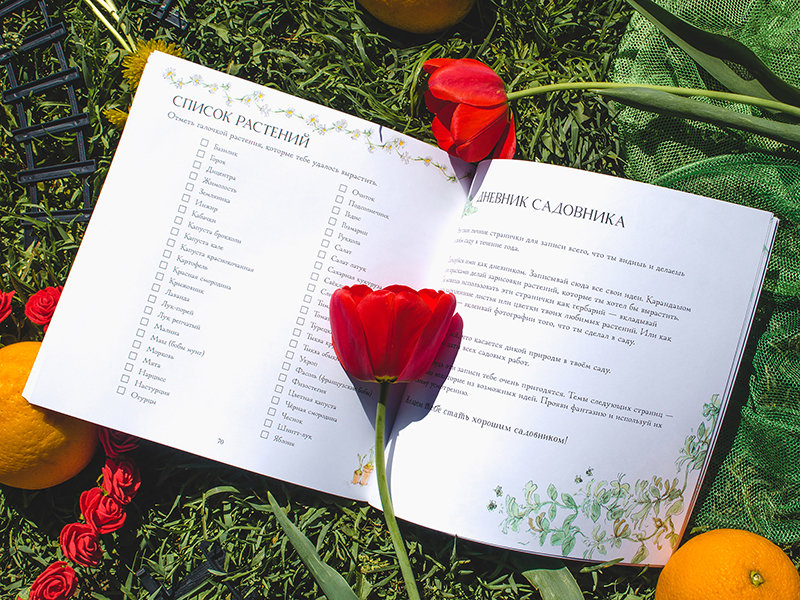 СПИСОК РАСТЕНИЙ
Отметь галочкой растения, которые тебе удалось вырастить.
Базилик
Горох
Дицентра
Жимолость
Земляника
Инжир
Кабачки
Капуста брокколи
Капуста кале
Капуста краснокочанная
Картофель
Красная смородина
Крыжовник
Лаванда
Лук-порей
Лук репчатый
Малина
Маш (бобы мунг)
Морковь
Мята
Нарцисс
Настурция
Огурцы
Очиток
Подсолнечник
Редис
Розмарин
Руккола
Салат
Салат латук
Сахарная кукуруза
Тыква
Тыква
Укроп
Фасоль (французская)
Физостегия
Цветная капуста
Чёрная смородина
Чеснок
Шнитт-лук
Яблоня
70
ДНЕВНИК САДОВНИКА
странички для записи всего, что ты видишь и делаешь
саду в течение года.
как дневником. Записывай сюда все свои идеи. Карандашом
делай зарисовки растений, которые ты хотел бы вырастить.
использовать эти странички как гербарий — вкладывай
листья или цветки твоих любимых растений. Или как
вклеивай фотографии того, что ты сделал в саду.
что касается дикой природы в твоём саду.
всех садовых работ.
эти записи тебе очень пригодятся. Темы следующих страниц —
некоторые из возможных идей. Прояви фантазию и используй их
усмотрению.
тебе стать хорошим садовником!